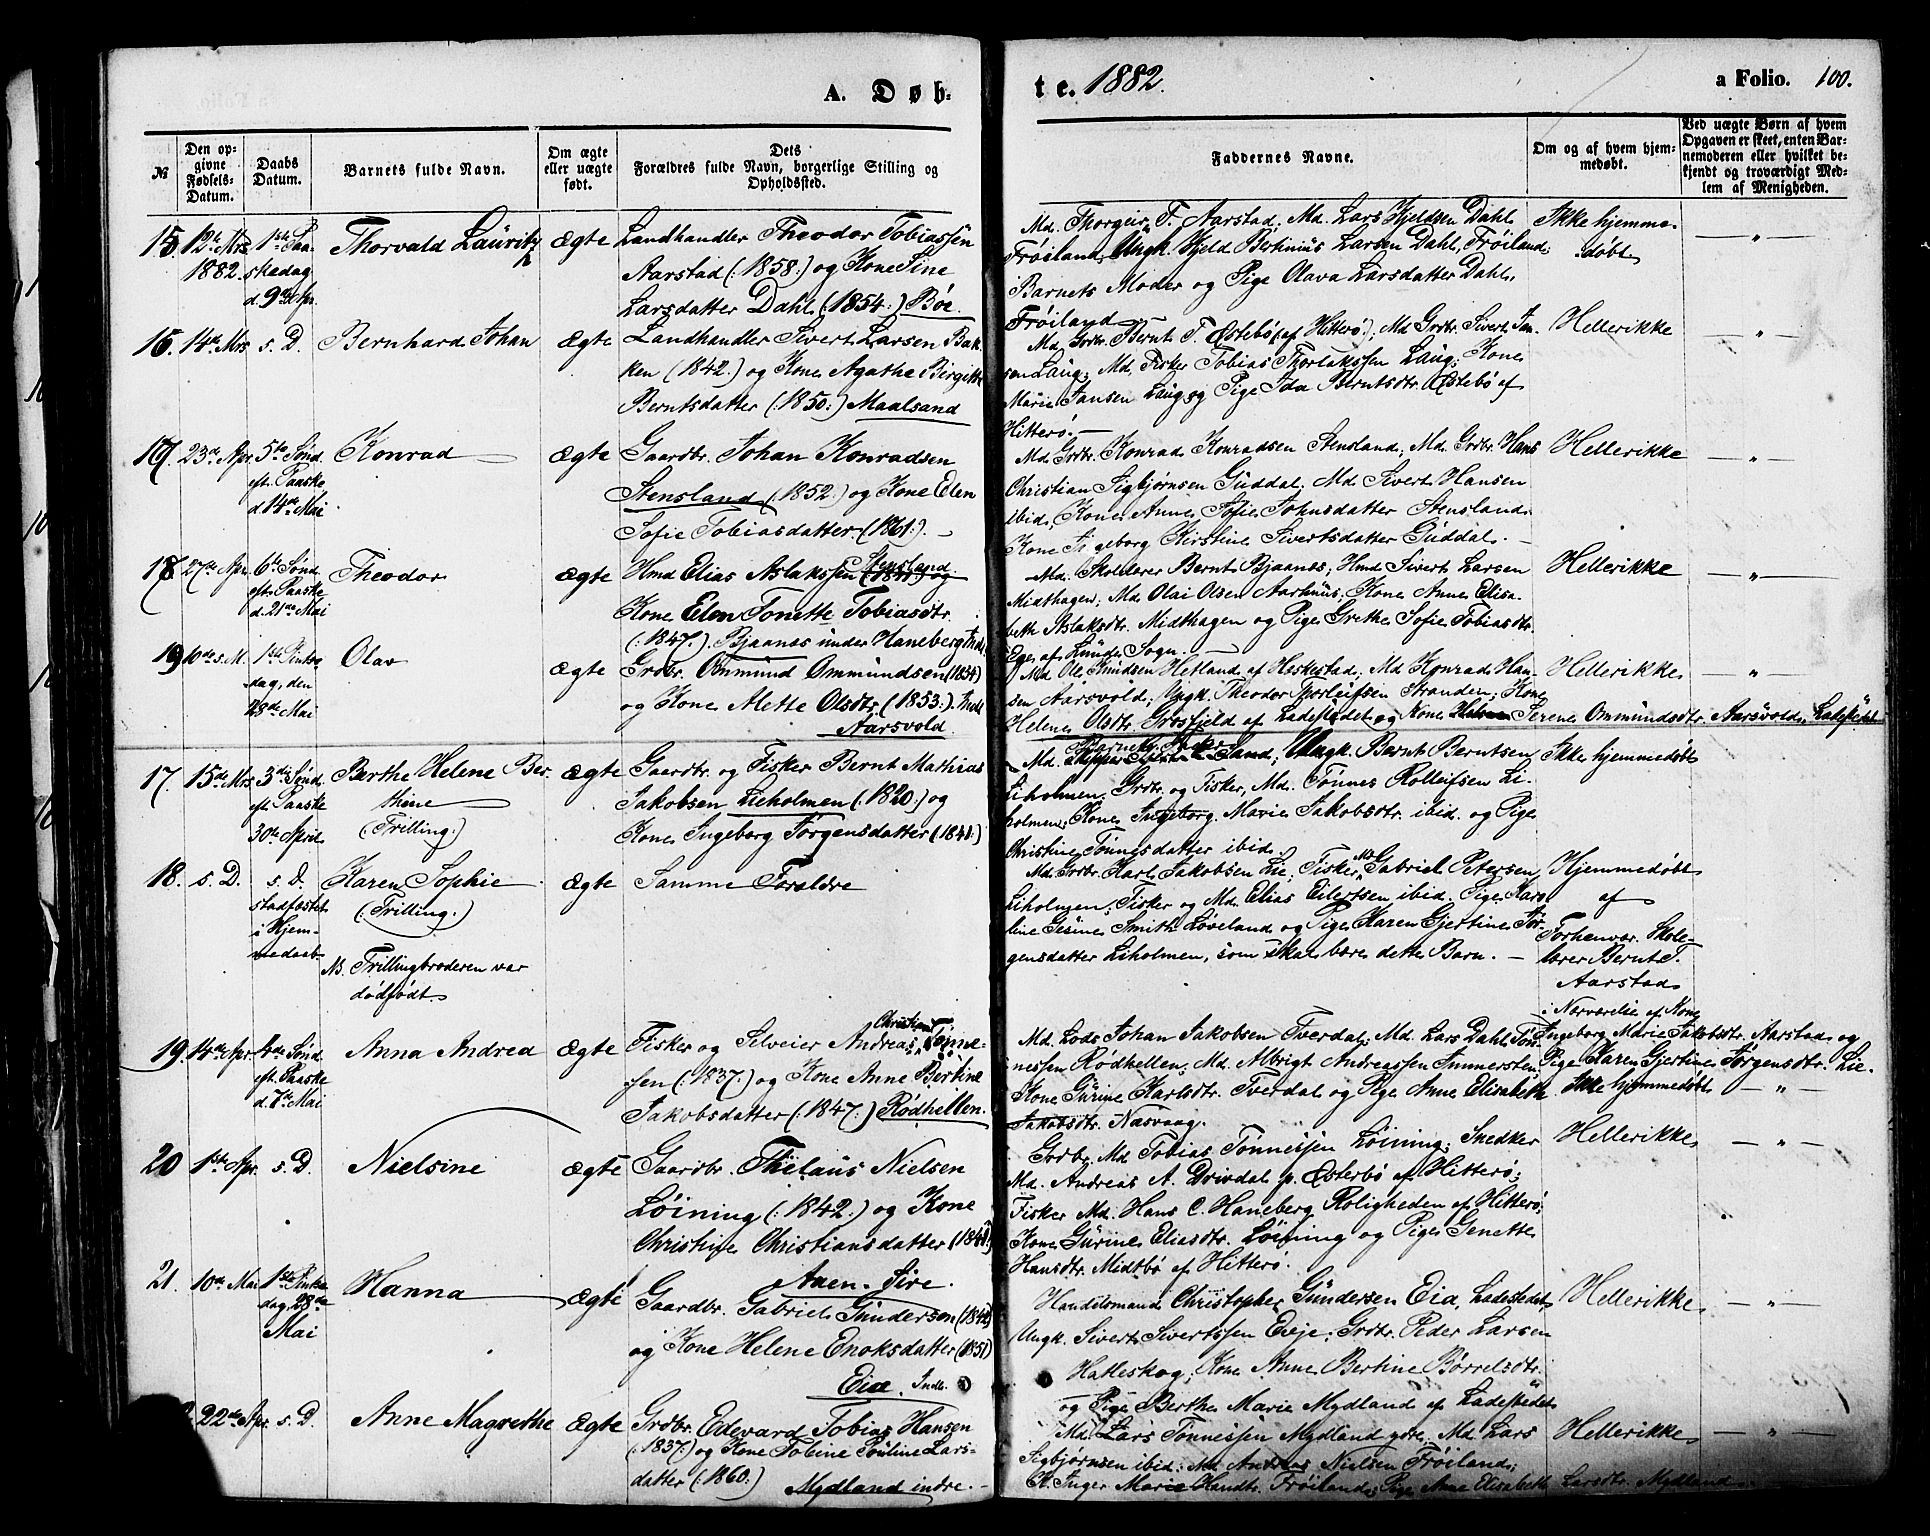 A. Døb-
te. 1882.
a Folio. 100.
№
Den op-
givne
Fødsels-
Datum.
Daabs
Datum.
Barnets fulde Navn.
Om ægte
eller uægte
født.
Dets
Forældres fulde Navn, borgerlige Stilling og
Opholdssted.
Faddernes Navne.
Om og af hvem hjem-
medøbt.
Ved uægte Børn af hvem
Opgaven er skeet, enten Bar-
nemoderen eller hvilket be-
kjendt og troværdigt Med-
lem af Menigheden.
15. 12te Mrs
1882.
1ste Paa-
skedag
d. 9de Apr.
Thorvald Lauritz
ægte
Landhandler Theodor Tobiassen
Aarstad (: 1858:) og Kone Sine
Larsdatter Dahl (: 1854:) Bøe.
Md. Thorgeir T. Aarstad; Md. Lars Kjeldsen Dahl
Frøiland; Ungk. Kjeld Bertinius Larsen Dahl, Frøiland;
Barnets Moder og Pige Olava Larsdatter Dahl,
Frøiland
Ikke hjemme-
døbt
— " —
16. 14de Mrs
s. D.
Bernhard Johan
ægte
Landhandler Sivert Larsen Bak-
ken (1842:) og Kone Agathe Bergitte
Berntsdatter (: 1850:) Maalsand
Md. Grdbr. Bernt T. Østebø (af Hitterø); Md. Grdbr. Sivert Jan-
sen Laug; Md. Fisker Tobias Thorlakssen Laug; Kone
Marie Jansen Laug og Pige Ida Berntsdtr. Østebø af
Hitterø. —
Hellerikke
— " —
17. 23de Apr.
5te Sønd.
eft. Paaske
d. 14de Mai
Konrad —
ægte
Gaardbr. Johan Konradsen
Stensland (: 1852:) og Kone Elen
Sofie Tobiasdatter (1861:). —
Md. Grdbr. Konrad Konradsen Stensland; Md. Grdbr. Hans
Christian Sigbjørnsen Guddal; Md. Sivert Hansen
ibid; Kone Anne Sofie Johnsdatter Stensland.
Kone Ingeborg Kirstine Sivertsdatter Guddal. —
Hellerikke
— " —
18 27de Apr.
6te Sønd.
eft. Paaske
d. 21de Mai
Theodor
ægte
Hmd Elias Aslakssen Stensland (1841) og
Kone Elen Tonette Tobiasdtr.
(: 1847:) Bjaanas under Haneberg Indl.
Md. Skolelærer Bernt Bjaanes; Hmd Sivert Larsen
Midthagen; Md. Olai Olsen Aarhuus; Kone Anne Elisa-
beth Aslaksdtr. Midthagen og Pige Grethe Sofie Tobiasdtr.
Ege af Lunds Sogn. —
Hellerikke
— " —
19 10de s. M.
1ste Pintse
dag, den
28de Mai
Olav
ægte
Grdbr. Ommund Ommundsen (1854)
og Kone Mette Olsdtr. (1853:). Indl
Aarsvold.
Md. Ole Knudsen Hetland af Heskestad; Md. Konrad Han-
sen Aarsvold; Ungk. Theodor Thorleifsen Stranden; Kone
Helene Olsdtr. Grosfjeld af Ladestedet og Kone Serene Ommundsdtr. Aarsvold, Ladestedet
Hellerikke
— " —
17. 15de Mrs.
3die Sønd.
eft. Paaske
30te April
Berthe Helene Ber-
thine
(Trilling.)
ægte
Gaardbr. og Fisker Bernt Mathias
Jakobsen Lieholmen (: 1820:) og
Kone Ingeborg Jørgensdatter (1841:)
Md. Sand; Ungk. Bernt Berntsen
Liholmen. Grdbr. og Fisker, Md. Tønnes Rolleifsen Li-
holmen; Kone Ingeborg Marie Jakobsdtr. ibid. og Pige
Christine Tønnesdatter ibid.
Ikke hjemmedøbt
18. s. D.
s. D.
stadfæstet
i Hjem-
medaab
Karen Sophie
(Trilling.)
NB. Trillingbroderen var
dødfødt.
ægte
Samme Forældre
Md. Grdbr. Karl Jakobsen Lie; Fisker Md. Gabriel Petersen
Liholmen; Fisker og Md. Elias Eilertsen ibid. Pige Karo-
line Gesine Smith Løveland og Pige Karen Gjertine Jør-
gensdatter Liholmen, som skal bære dette Barn. —
Hjemmedøbt
af
Forhenvær. Skole-
lærer Bernt T.
Aarstad
i Nærværelse af Kone
Ingeborg Marie Jakobsdtr. Aarstad og
Pige Karen Gjertine Jørgensdtr. Lie.
19. 14de Apr.
4de Sønd.
eft. Paaske
d. 7de Mai
Anna Andrea
ægte
Fisker og Selveier Andreas Christian Tønne-
sen (: 1837:) og Kone Anne Bertine
Jakobsdatter (: 1847:) Rødhellen.
Md. Lods Johan Jakobsen Tverdal; Md. Lars Dahl Tøn-
nessen Rødhellen; Md. Albrigt Andreassen Immersten;
Kone Gurine Karlsdtr. Tverdal og Pige Anne Elisabeth
Jakobsdtr. Næsvaag.
Ikke hjemmedøbt
— " —
20 1ste Apr.
s. D.
Nielsine
ægte
Gaardbr. Thelaus Nielsen
Løining (: 1842:) og Kone
Christine Christiansdatter (1848:)
Aaen-Sire.
Grdbr. Md Tobias Tønnessen Løining; Snedker
Md. Andreas A. Drivdal p. Østerbø af Hitterø;
Fisker Md. Hans C. Haneberg Roligheden af Hitterø;
Kone Gurine Eliasdtr. Løining og Pige Genette
Hansdtr. Midtbø af Hitterø.
Hellerikke
— " —
21. 10de Mai
1ste Pintse
dag, 28de
Mai
Hanna
ægte
Gaardbr. Gabriel Gundersen (1842)
og Kone Helene Enoksdatter (1851)
Eia. Indl.
Handelsmand Christopher Gundersen Eia, Ladestedet
Ungk. Sivert Sivertssen Eieje; Grdbr. Peder Larsen
Hatleskog; Kone Anne Bertine Børrelsdtr.
og Pige Berthe Marie Mydland af Ladestedet
Hellerikke
— " —
22de Apr.
s. D.
Anne Magrethe
ægte
Grdbr. Edevard Tobias Hansen
(: 1837:) og Kone Tobine Pouline Lars-
datter (: 1860:)
Mydland indre. —
Md. Lars Tønnessen Mydland ydre; Md. Lars
Sigbjørnsen ibid; Md. Andreas Nielsen Frøiland;
K. Inger Marie Handtr. Frøiland; Pige Anne Elisabeth Larsdtr. Mydland
Hellerikke
— " —